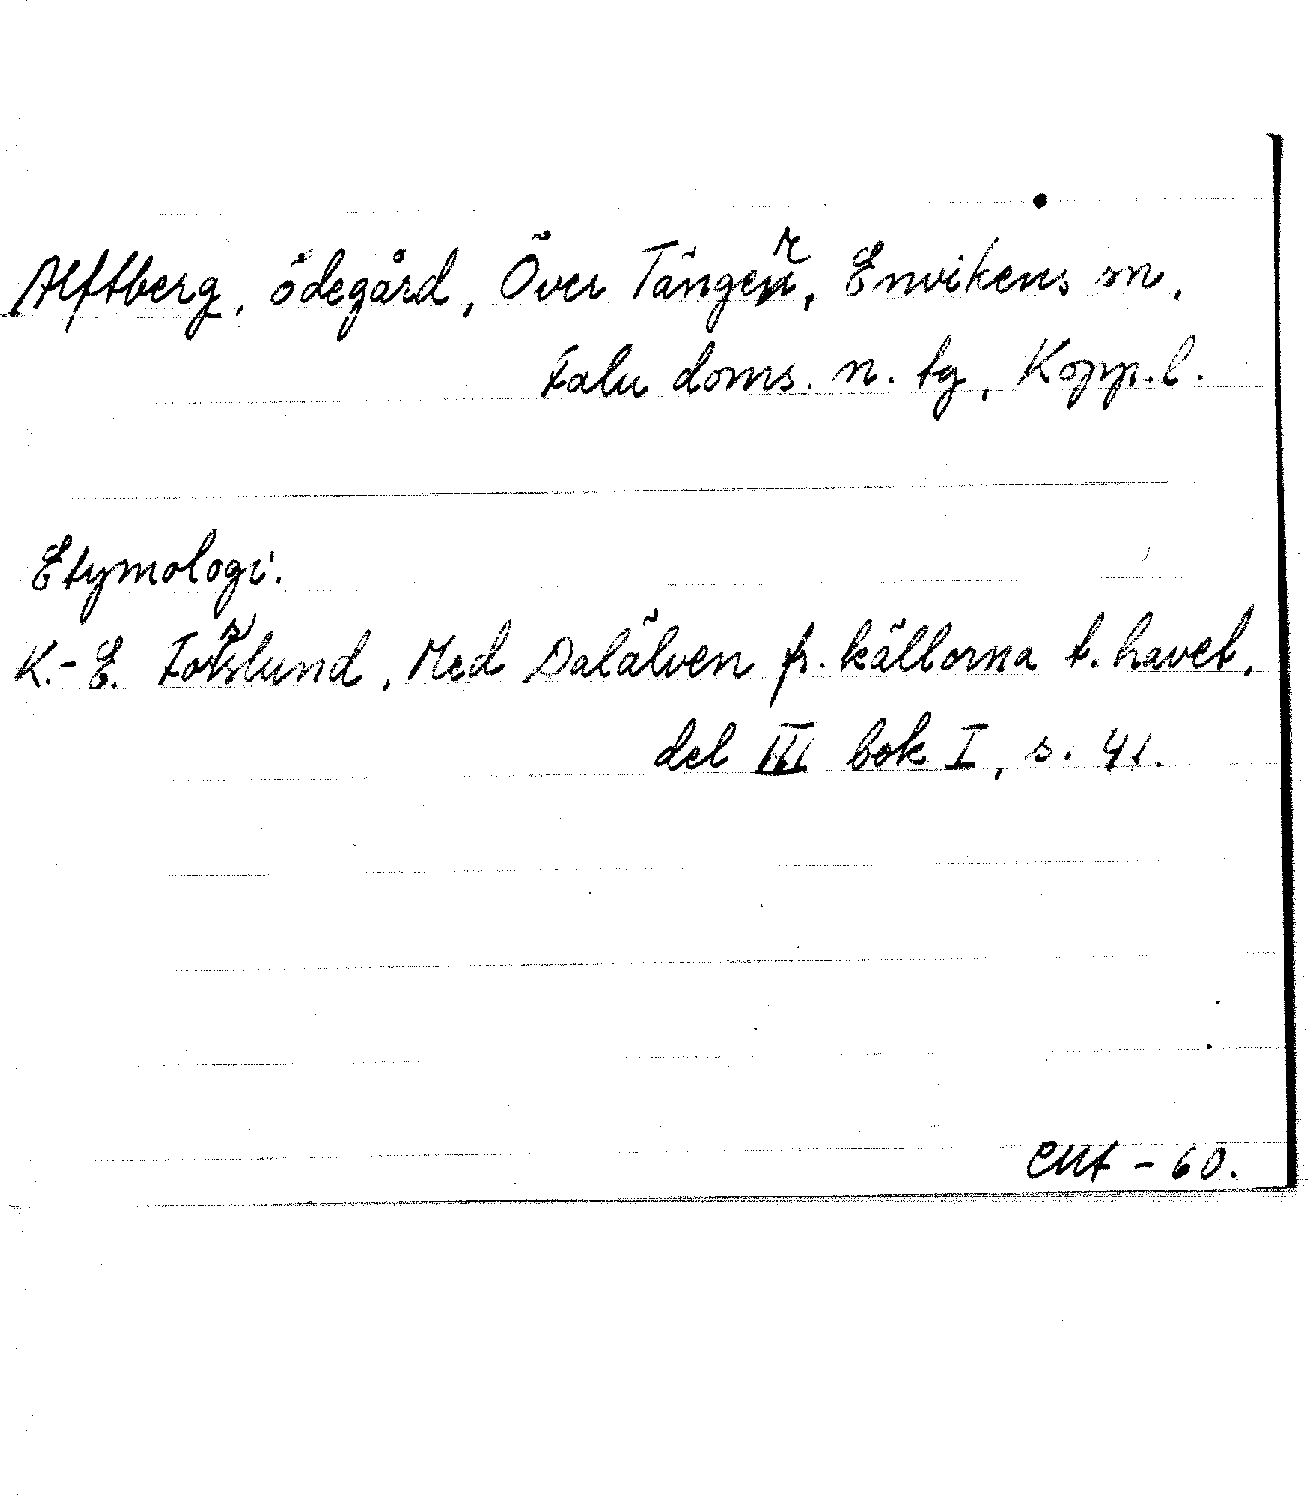 Alftberg, ödegård, Över Tänger, Envikens sn,
Falu doms. n. tg, Kopp. l.
Etymologi.
K.-E. Forslund, Med Dalälven fr. källorna t. havet,
del III bok I, s. 41.
EMt - 60.